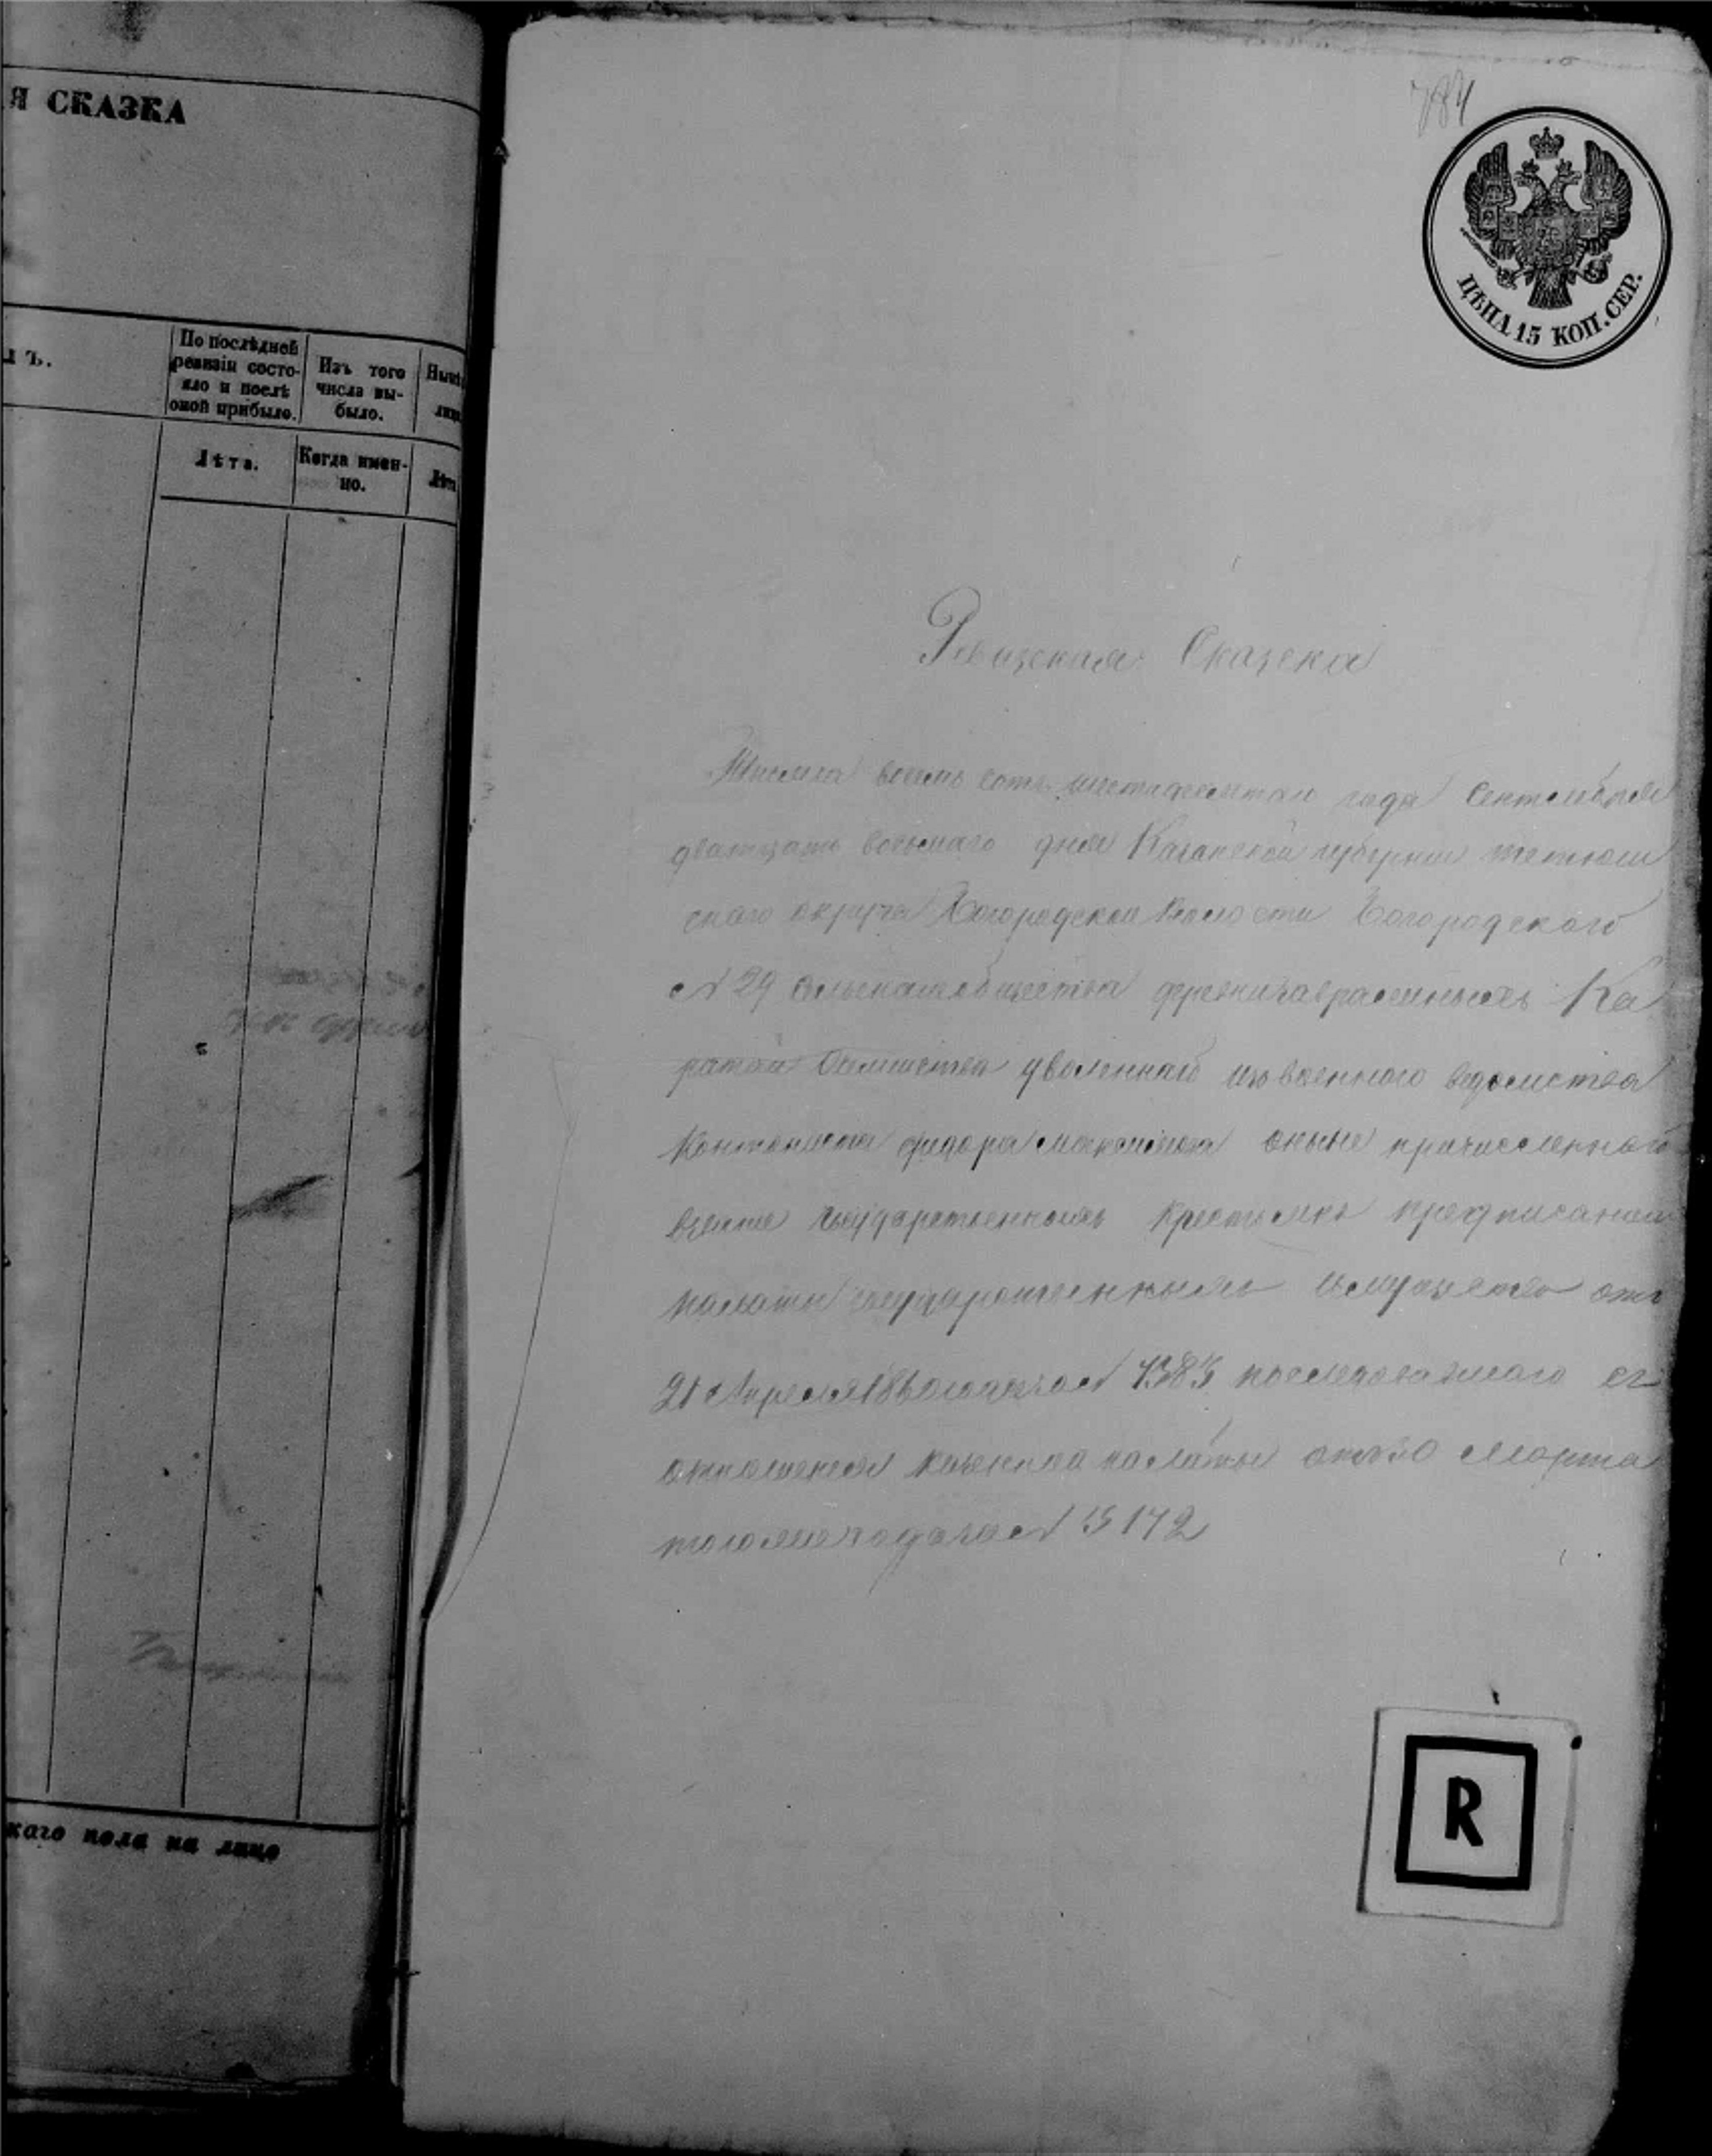 Я СКАЗКА
Ъ.
По послѣдней
ревизіи состо-
яло и послѣ
оной прибыло.
Изъ того
числа вы-
было.
Нынѣ
лицо
Лѣта.
Когда имен-
но.
Лѣта
каго пола на лицо
784
ЦѢНА 15 КОП. СЕР.
Ревизская Сказка
Тысяча восемь сотъ шестидесятаго года Сентября
дватцать восьмаго дня Казанской губерніи тетюш
скаго округа Богородской волости Богородскаго
№ 29 сельскаго общества деревни Ка
ратай уволеннаго изъ военнаго ведомства
Кантониста федора оныне причисленнаго
государственныхъ крестьянъ предписанію
палаты государственныхъ имуществъ отъ
21 Апреля 1860 года за № 4383 последовавшаго
отношенія казенной палаты отъ 30 Марта
того же года за № 5142
R